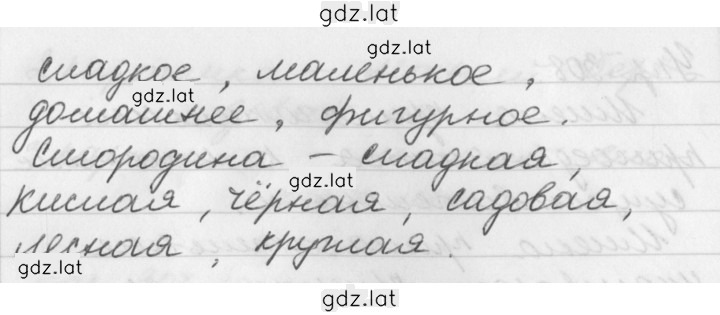 gdz.lat
сладкое, маленькое,
gdz.lat
gdz.lat
домашнее, фигурное.
Смородина – сладкая,
gdz.lat
кислая, чёрная, садовая,
лесная, круглая.
gdz.lat
gdz.lat